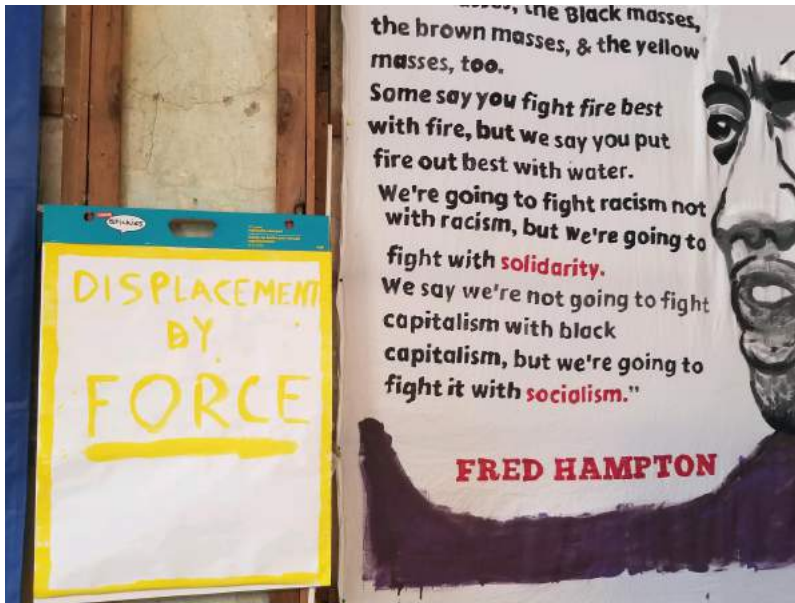 STICKIES
DISPLACEMENT
BY
FORCE
the Black masses,
the brown masses, & the yellow
masses, too.
Some say you fight fire best
with fire, but we say you put
fire out best with water.
We're going to fight racism not
with racism, but we're going to
fight with solidarity.
We say we're not going to fight
capitalism with black
capitalism, but we're going to
fight it with socialism."
FRED HAMPTON